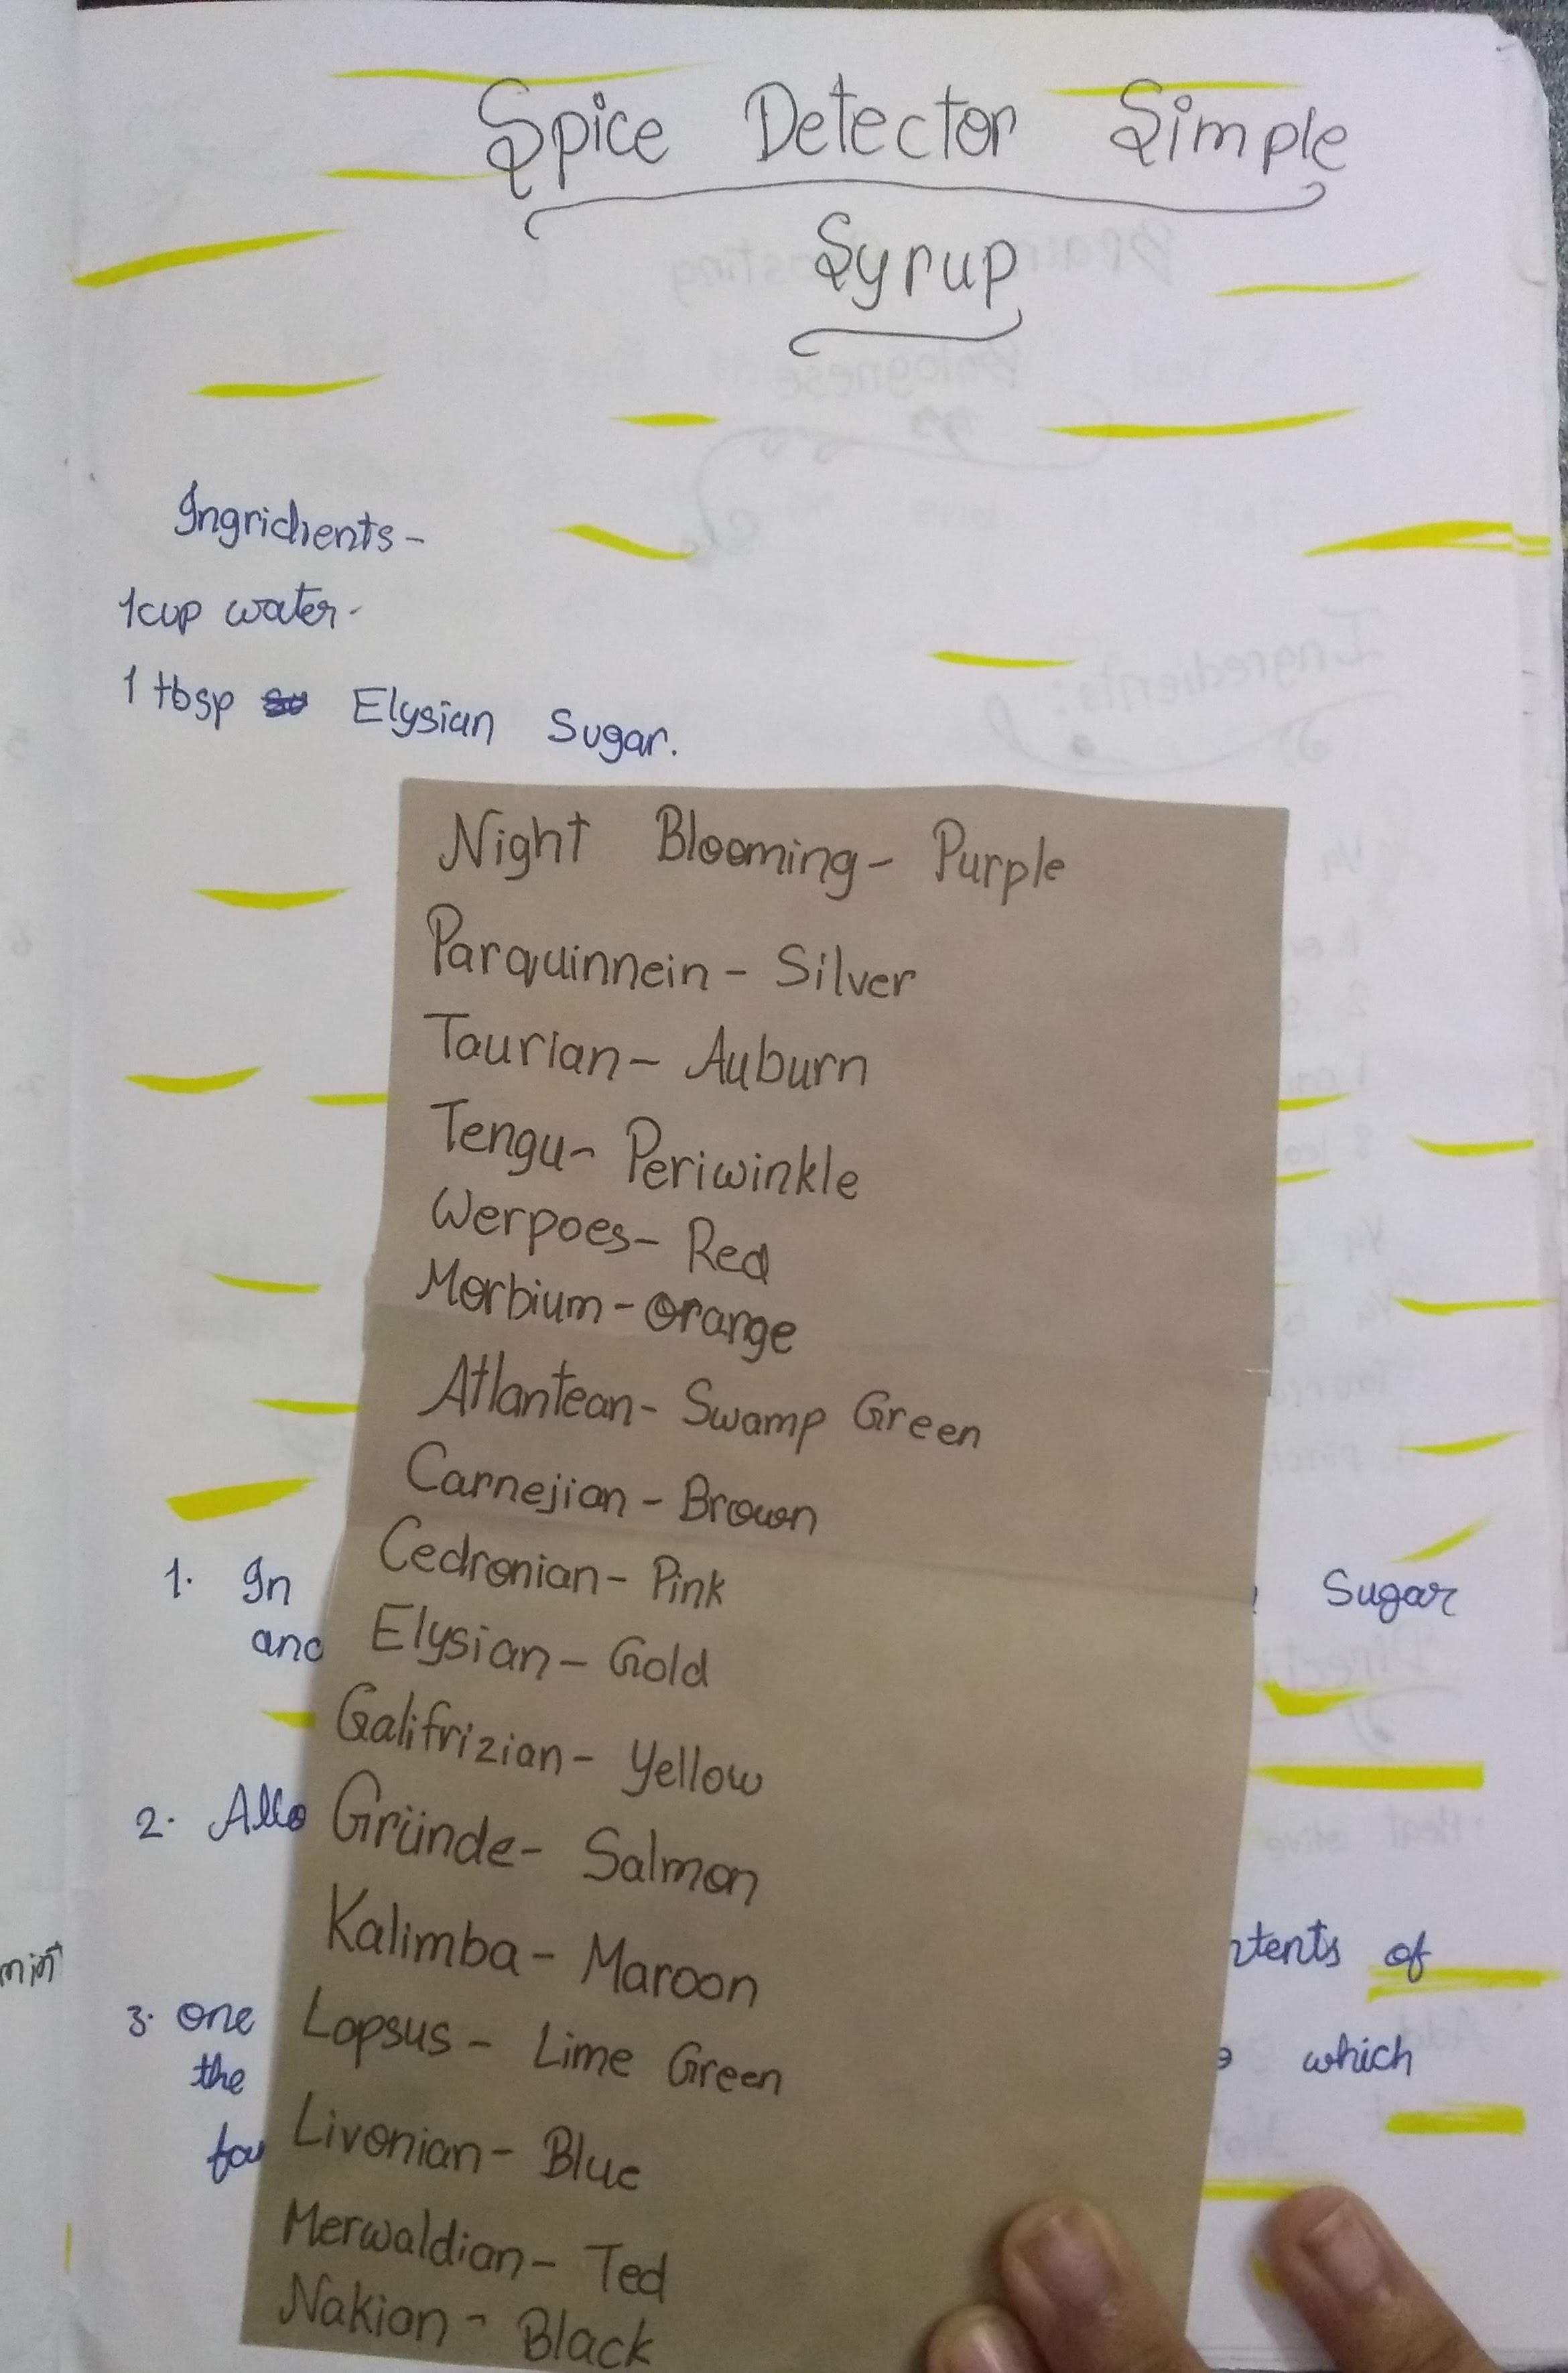 Spice Detector Simple
Syrup
Ingridients-
1cup water-
1 tbsp Elysian Sugar.
Night Blooming- Purple
Parquinnein- Silver
Taurian- Auburn
Tengu- Periwinkle
Werpoes- Red
Morbium-orange
Atlantean- Swamp Green
Carnejian- Brown
Cedronian- Pink
Elysian- Gold
Galifrizian- Yellow
Gründe- Salmon
Kalimba- Maroon
Lopsus- Lime Green
Livonian- Blue
Merwaldian- Ted
Nakian- Black
1. In Sugar
and
2. Allo
ntents of
3. one
the which
fou